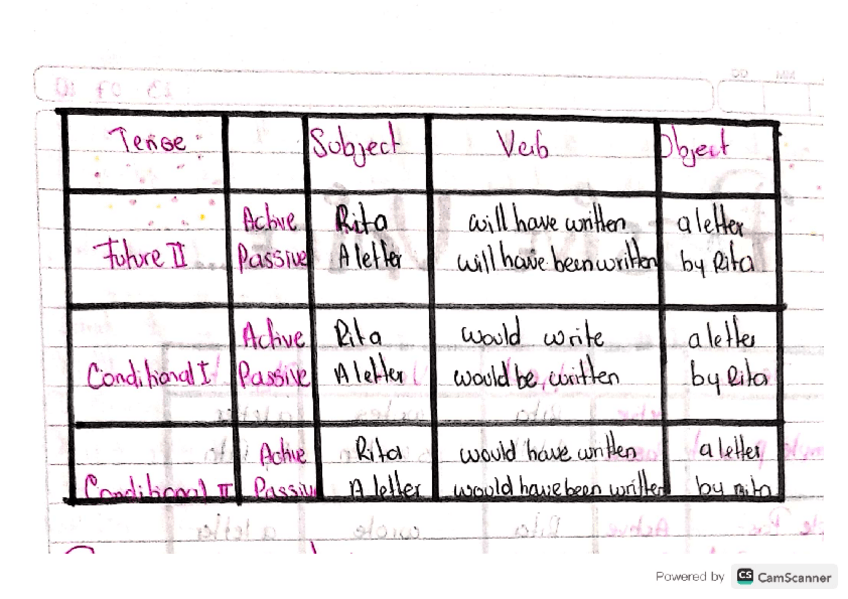 Tense Subject Verb Object
Active Rita will have written a letter
Future II Passive A letter will have been written by Rita
Active Rita would write a letter
Conditional I Passive A letter would be written by Rita
Active Rita would have written a letter
Conditional II Passive A letter would have been written by Rita
Powered by CS CamScanner